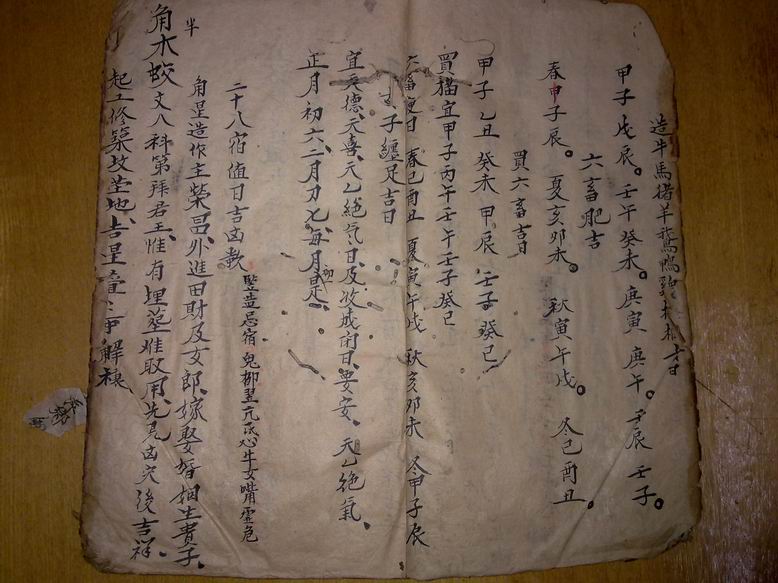 造牛馬猪羊鵞鴨雞
甲子 戊辰。壬午 癸未。庚寅 庚午。壬辰 壬子。
六畜肥吉
春申子辰。夏亥卯未。秋寅午戌。冬巳酉丑。
買六畜吉日
甲子 乙丑 癸未 甲辰 壬子 癸巳
買猫宜甲子 丙午 壬午 壬子 癸巳
春巳酉丑 夏寅午戌 秋亥卯未 冬申子辰
子纏足吉日
宜 天德、天喜、天乙絕氣日、及收成閉日、要安、天乙絕氣、
正月初六、二月初七、每月是、
二十八宿值日吉凶歌
豎造忌宿 鬼柳翌亢氐心牛女嘴虛危
角星造作主榮昌、外進田財及女郎、嫁娶婚姻生貴子、
半
角木蛟 文人科第拜君王、惟有埋葬难取用、先見凶灾後吉祥、
起工修築坟茔地、吉星解禳